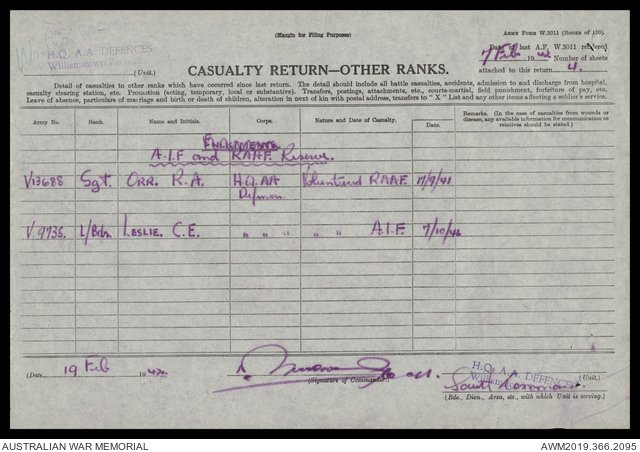 (Margin for Filing Purposes)
ARMY FORM W.3011 (BOOKS OF 100).
H.Q. A.A. DEFENCES
Williamstown
(Unit.)
Date of last A.F. W.3011 rendered
7 Feb 194 Number of sheets
attached to this return 4.
CASUALTY RETURN—OTHER RANKS.
Detail of casualties to other ranks which have occurred since last return. The detail should include all battle casualties, accidents, admission to and discharge from hospital,
casualty clearing station, etc. Promotion (acting, temporary, local or substantive). Transfers, postings, attachments, etc., courts-martial, field punishment, forfeiture of pay, etc.
Leave of absence, particulars of marriage and birth or death of children, alteration in next of kin with postal address, transfers to "X" List and any other items affecting a soldier's service.
Army No. Rank. Name and Initials. Corps. Nature and Date of Casualty. Date. Remarks. (In the case of casualties from wounds or
disease, any available information for communication to
relatives should be stated.)
ENLISTMENTS
A.I.F and RAAF. Reserve.
V13688 Sgt. ORR. R.A. H.Q. AA Volunteered RAAF.
V.9735. L/Bdr. LESLIE. C.E. " " " " " A.I.F. 7/10/
(Date 19 Feb 194
(Signature of Commander.)
H.Q. A.A. DEFENCES
(Unit.)
South Command
(Bde., Divn., Area, etc., with which unit is serving.)
AUSTRALIAN WAR MEMORIAL
AWM2019.366.2095